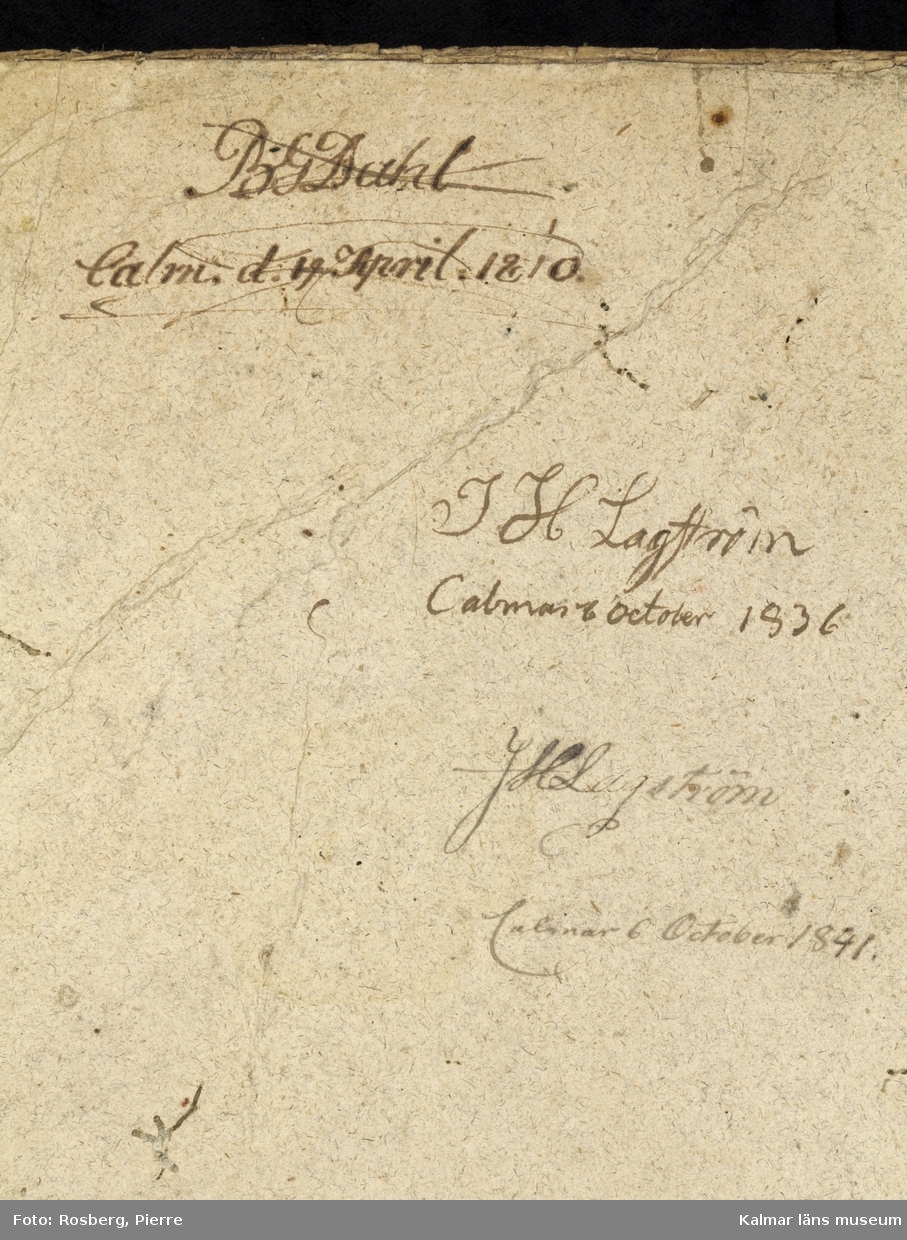 BGDahl
Calm. d. 14 April. 1810.
J H Lagström
Calmar 6 October 1836
JHLagström
Calmar 6 October 1841.
Foto: Rosberg, Pierre
Kalmar läns museum